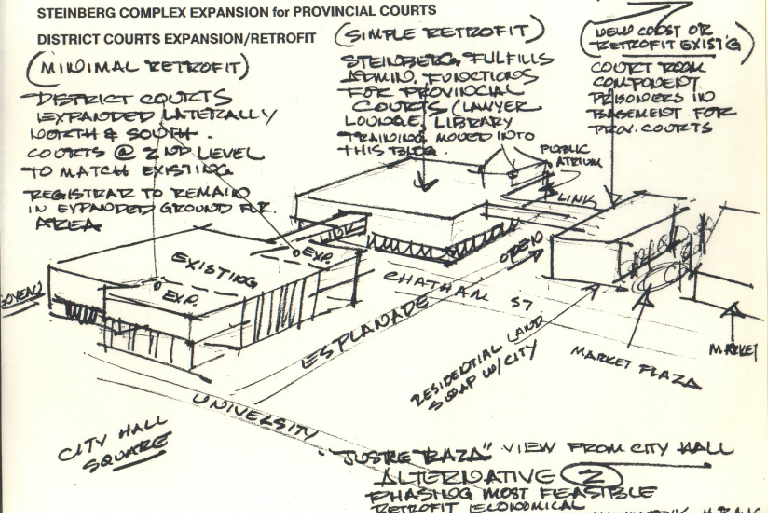 STEINBERG COMPLEX EXPANSION for PROVINCIAL COURTS
DISTRICT COURTS EXPANSION/RETROFIT
(MINIMAL RETROFIT)
DISTRICT COURTS
EXPANDED LATERALLY
NORTH & SOUTH.
COURTS @ 2ND LEVEL
TO MATCH EXISTING
REGISTRAR TO REMAIN
IN EXPANDED GROUND FLR.
AREA
(SIMPLE RETROFIT)
STEINBERG FULFILLS
ADMIN. FUNCTIONS
FOR PROVINCIAL
COURTS (LAWYER
LOUNGE, LIBRARY
TRAINING MOVED INTO
THIS BLDG.
(NEW CONST OR
RETROFIT EXIST'G)
COURT ROOM
COMPONENT
PRISONERS IN
BASEMENT FOR
PROV. COURTS
PUBLIC
ATRIUM
LINK
LINK
EXISTING
EXP.
EXP.
OPEN
CHATHAM ST
ESPLANADE
RESIDENTIAL LAND
SWAP W/CITY
MARKET PLAZA
MARKET
UNIVERSITY
CITY HALL
SQUARE
"JUSTRE PLAZA" VIEW FROM CITY HALL
ALTERNATIVE 2
PHASING MOST FEASIBLE
RETROFIT ECONOMICAL